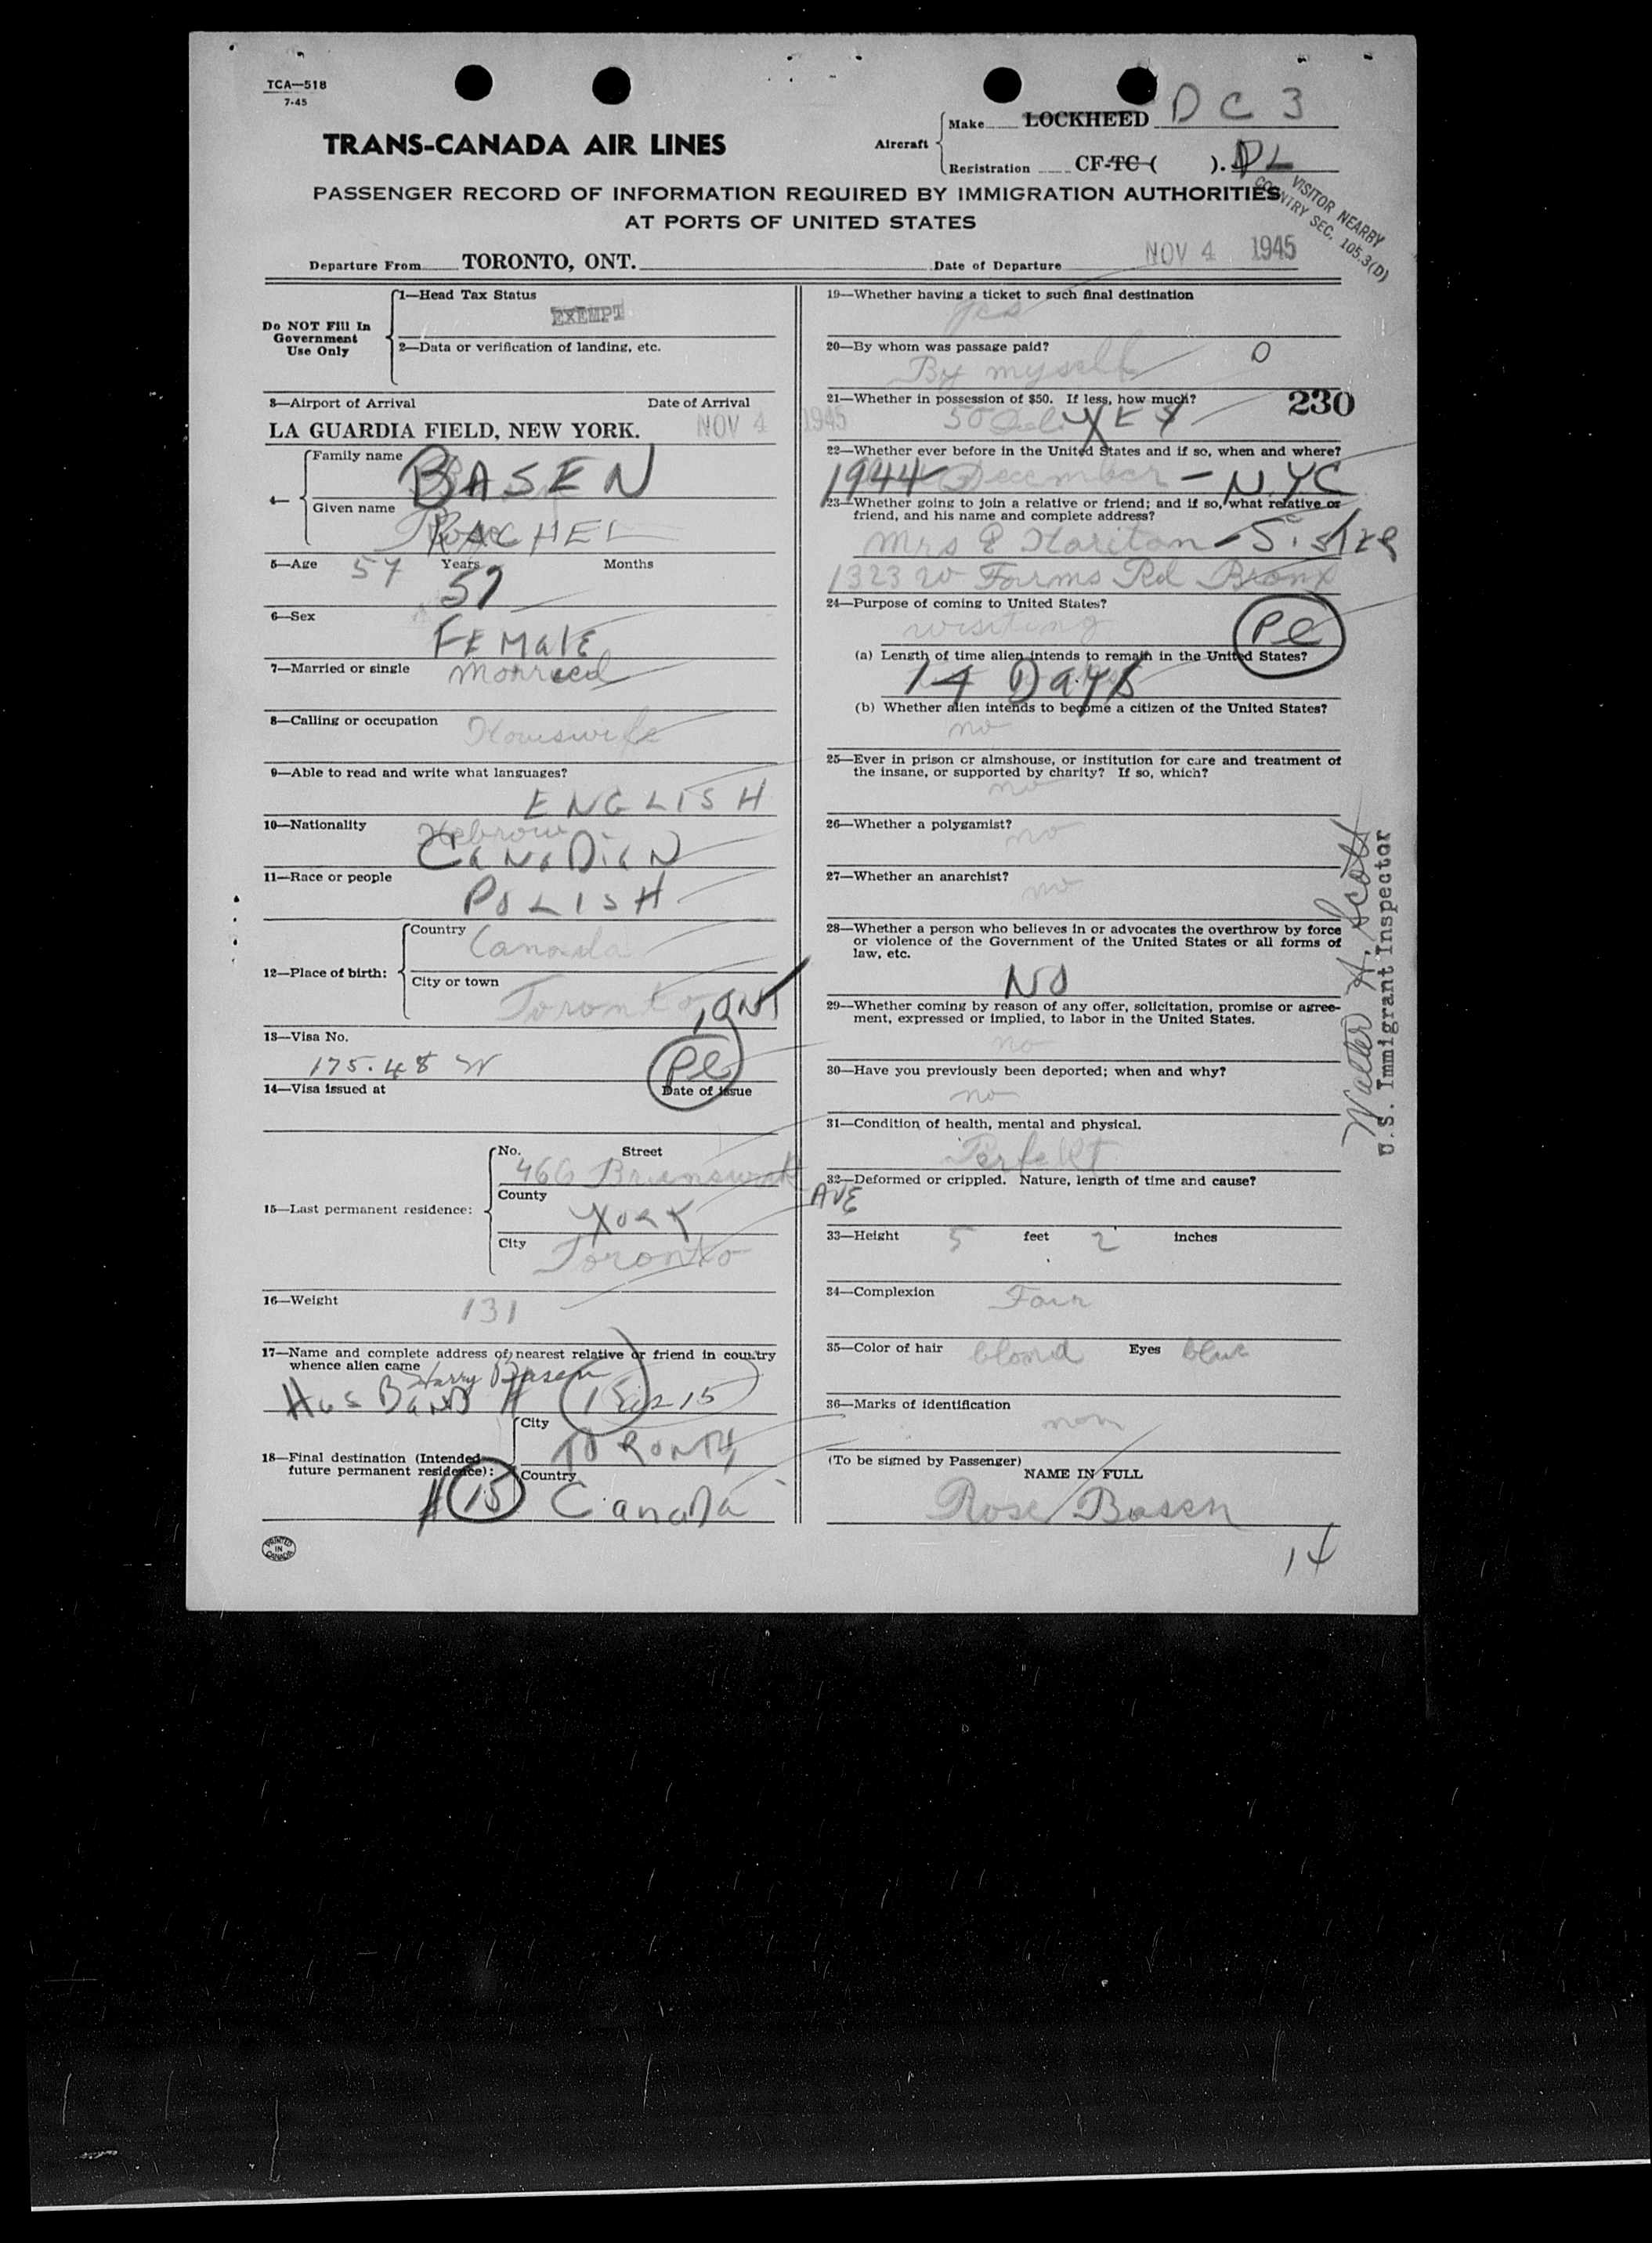 TCA—518
7-45
TRANS-CANADA AIR LINES
Aircraft
Make LOCKHEED D C 3
Registration CF-TC-( ). DL
PASSENGER RECORD OF INFORMATION REQUIRED BY IMMIGRATION AUTHORITIES
AT PORTS OF UNITED STATES
VISITOR NEARBY
COUNTRY SEC. 105.3(D)
Departure From TORONTO, ONT.
Date of Departure NOV 4 1945
Do NOT Fill In
Government
Use Only
1—Head Tax Status
EXEMPT
2—Data or verification of landing, etc.
3—Airport of Arrival Date of Arrival
LA GUARDIA FIELD, NEW YORK. NOV 4 1945
4—
Family name BASEN
Given name RACHEL
5—Age 57 Years Months
57
6—Sex
FEMALE
7—Married or single Married
8—Calling or occupation Houswife
9—Able to read and write what languages?
ENGLISH
10—Nationality Hebrow
CANADIAN
11—Race or people
POLISH
12—Place of birth:
Country Canada
City or town
Toronto, ONT
13—Visa No.
175.48 W
PL
14—Visa issued at Date of issue
15—Last permanent residence:
No. Street
466 Brunswick AVE
County
YORK
City Toronto
16—Weight 131
17—Name and complete address of nearest relative or friend in country
whence alien came Harry Basen
HUSBAND # 15
18—Final destination (Intended
future permanent residence):
City
TORONTO
Country
# 15 Canada
PRINTED
IN
CANADA
19—Whether having a ticket to such final destination
yes
20—By whom was passage paid?
By myself
21—Whether in possession of $50. If less, how much?
50 YES
230
22—Whether ever before in the United States and if so, when and where?
1944 December - NYC
23—Whether going to join a relative or friend; and if so, what relative or
friend, and his name and complete address?
Mrs Hariton - Sister
1323 W Farms Rd Bronx
24—Purpose of coming to United States?
visiting
PL
(a) Length of time alien intends to remain in the United States?
14 Days
(b) Whether alien intends to become a citizen of the United States?
no
25—Ever in prison or almshouse, or institution for care and treatment of
the insane, or supported by charity? If so, which?
no
26—Whether a polygamist? no
27—Whether an anarchist? no
28—Whether a person who believes in or advocates the overthrow by force
or violence of the Government of the United States or all forms of
law, etc.
NO
29—Whether coming by reason of any offer, solicitation, promise or agree-
ment, expressed or implied, to labor in the United States.
no
30—Have you previously been deported; when and why?
no
31—Condition of health, mental and physical.
Perfekt
32—Deformed or crippled. Nature, length of time and cause?
33—Height 5 feet 2 inches
34—Complexion Fair
35—Color of hair blond Eyes blue
36—Marks of identification
non
(To be signed by Passenger)
NAME IN FULL
Rose Basen
14
Walter A. Scott
U.S. Immigrant Inspector